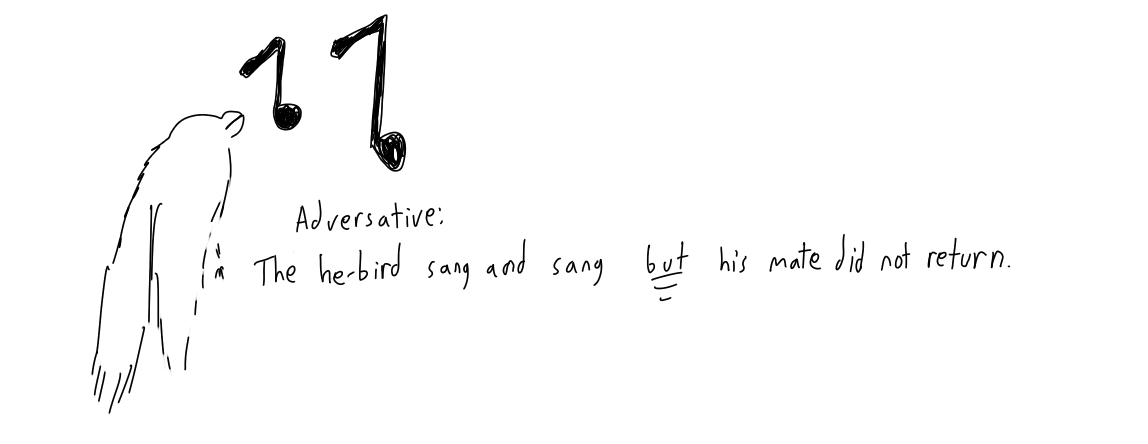 Adversative:
The he-bird sang and sang but his mate did not return.